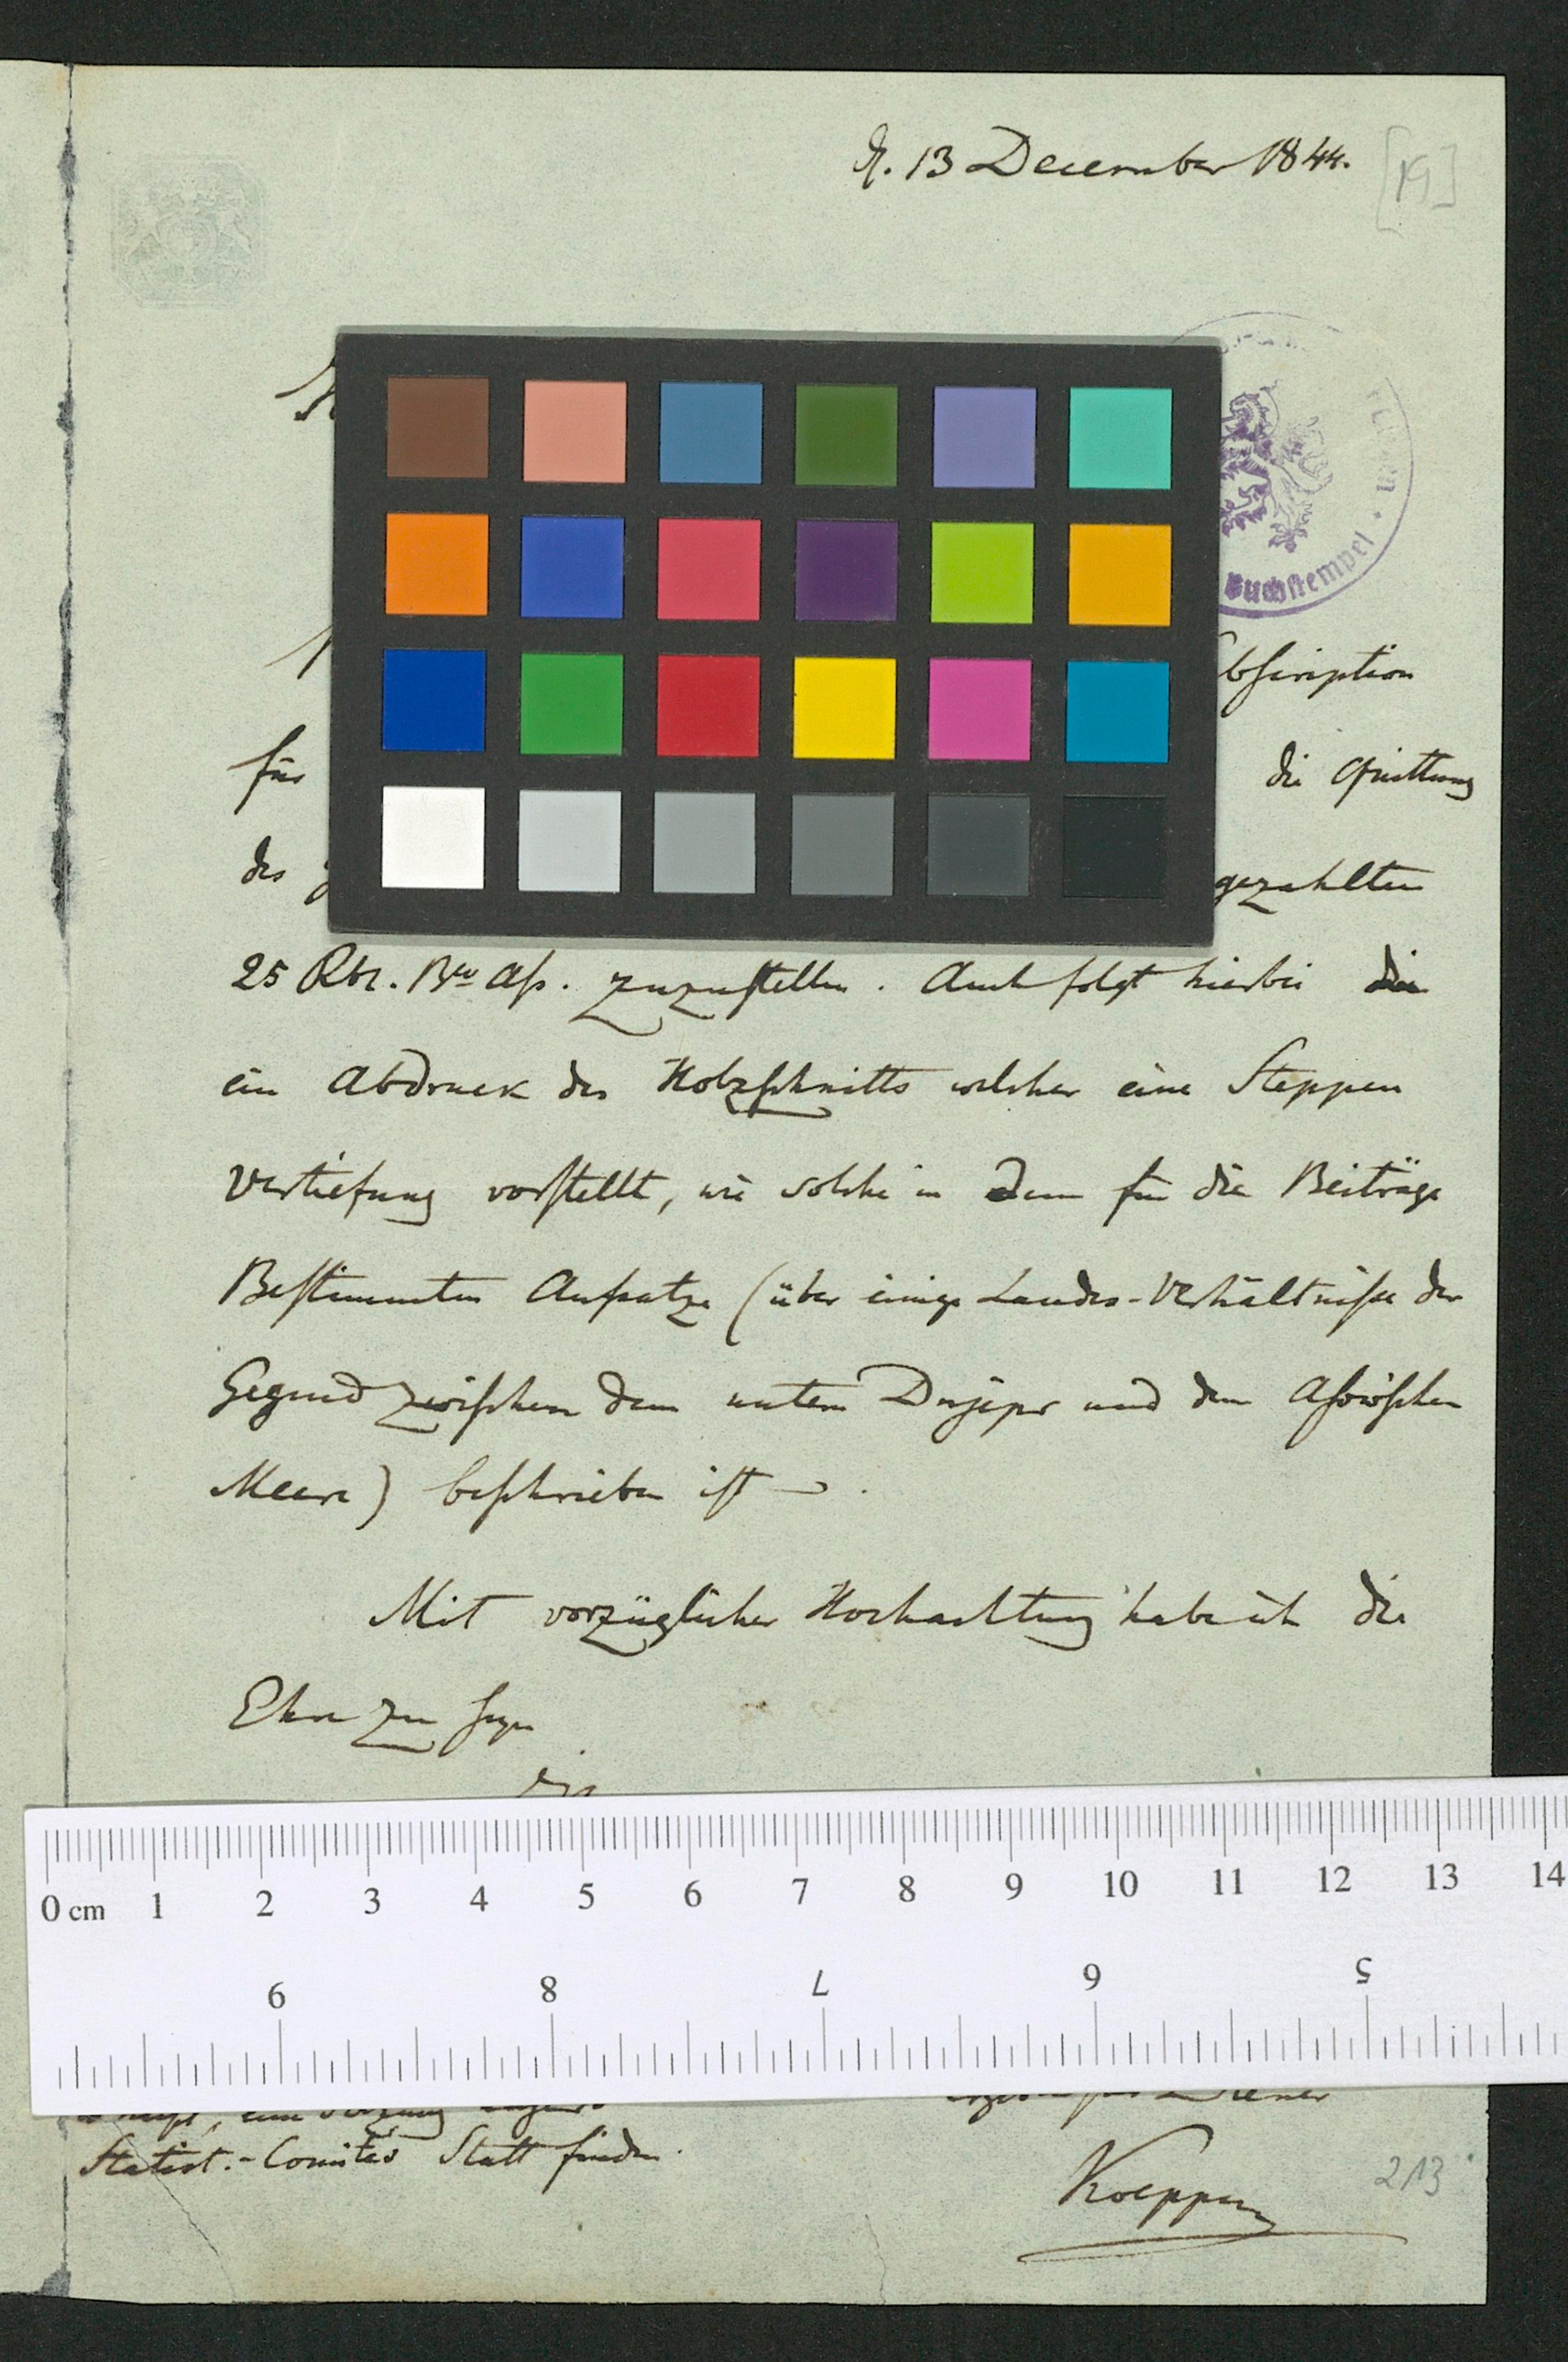 d. 13 December 1844.
[19]
bscription
für die Quittung
des gezahlten
25 Rbl. Bco Ass. zuzustellen. Auch folgt hierbei die
ein Abdruck des Holzschnitts welcher eine Steppen
Vertiefung vorstellt, wie solche in dem für die Beiträge
Bestimmten Aufsatze (über einige Landes-Verhältnisse der
Gegend zwischen dem untern Dnjepr und dem Asowschen
Meere) beschrieben ist.
Mit vorzüglicher Hochachtung habe ich die
Ehre zu seyn
0 cm 1 2 3 4 5 6 7 8 9 10 11 12 13 14
9 8 7 6 5
eine Sitzung
Diener
Statist.-Comités Statt finden.
Koeppen
213
Buchstempel